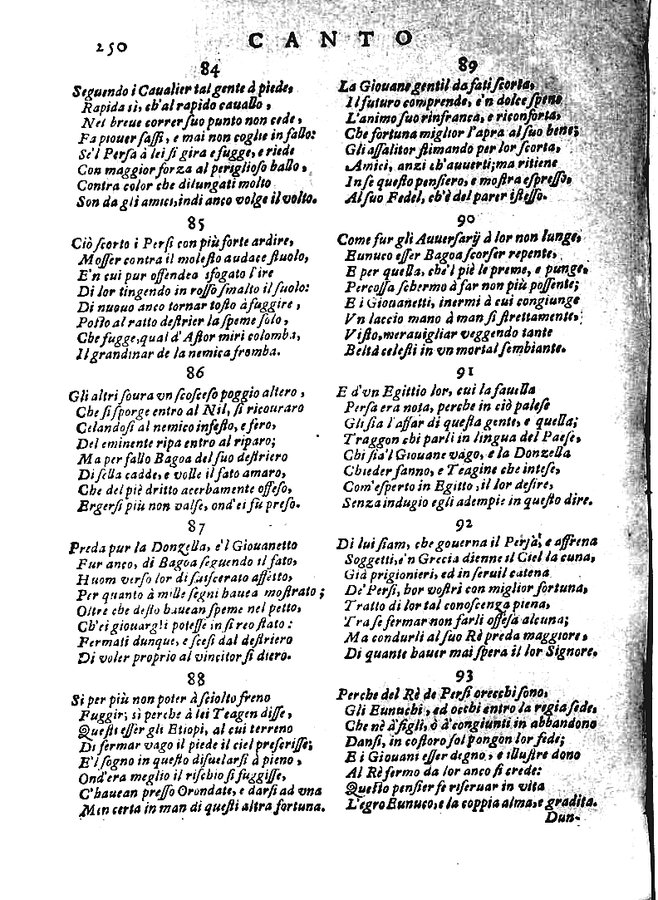 250
CANTO
84
Seguendo i Caualier tal gente à piede,
Rapida sì, ch'al rapido cauallo,
Nel breue correr suo punto non cede,
Fa piouer sassi, e mai non coglie in fallo:
Se'l Persa à lei si gira e fugge, e riede
Con maggior forza al periglioso ballo,
Contra color che dilungati molto
Son da gli amici, indi anco volge il volto.
85
Ciò scorto i Persi con più forte ardire,
Mosser contra il molesto audace stuolo,
E'n cui pur offendea sfogato l'ire
Di lor tingendo in rosso smalto il suolo:
Di nuouo anco tornar tosto à fuggire,
Posto al ratto destrier la speme solo,
Che fugge, qual d'Astor miri colomba,
Il grandinar de la nemica fromba.
86
Gli altri soura vn scosceso poggio altero,
Che si sporge entro al Nil, si ricouraro
Celandosi al nemico infesto, e fero,
Del eminente ripa entro al riparo;
Ma per fallo Bagoa del suo destriero
Di sella cadde, e volle il fato amaro,
Che del piè dritto acerbamente offeso,
Ergersi più non valse, ond'ei fù preso.
87
Preda pur la Donzella, e'l Giouanetto
Fur anco, di Bagoa seguendo il fato,
Huom verso lor di sasscerato affetto,
Per quanto à mille segni hauea mostrato;
Oltre che desto hauean speme nel petto,
Ch'ei giouargli potesse in sì reo stato:
Fermati dunque, e scesi dal destriero
Di voler proprio al vincitor si diero.
88
Si per più non poter à sciolto freno
Fuggir; sì perche à lei Teagen disse,
Questi esser gli Etiopi, al cui terreno
Di fermar vago il piede il ciel prescrisse;
E'l sogno in questo disuelarsi à pieno,
Ond'era meglio il rischio si fuggisse,
C'hauean presso Orondate, e darsi ad vna
Men certa in man di questi altra fortuna.
89
La Giouane gentil da fati scorta,
Il futuro comprende, e'n dolce spene
L'animo suo rinfranca, e riconforta,
Che fortuna miglior l'apra al suo bene;
Gli assalitor stimando per lor scorta,
Amici, anzi ch'auuerti; ma ritiene
In se questo pensiero, e mostra espresso,
Al suo Fedel, ch'è del parer istesso.
90
Come fur gli Auuersarij à lor non lunge,
Eunuco esser Bagoa scorser repente,
E per quella, che'l piè le preme, e punge,
Percossa schermo à far non più possente;
E i Giouanetti, inermi à cui congiunge
Vn laccio mano à man si strettamente;
Visto, merauigliar veggendo tante
Beltà celesti in vn mortal sembiante.
91
E d'vn Egittio lor, cui la fauella
Persa era nota, perche in ciò palese
Gli sia l'affar di questa gente, e quella;
Traggon chi parli in lingua del Paese,
Chi sia'l Giouane vago, e la Donzella
Chieder fanno, e Teagine che intese,
Com'esperto in Egitto, il lor desire,
Senza indugio egli adempie in questo dire.
92
Di lui siam, che gouerna il Persa, e affrena
Soggetti, e'n Grecia dienne il Ciel la cuna,
Già prigionieri, ed in seruil catena
De' Persi, hor vostri con miglior fortuna,
Tratto di lor tal conoscenza piena,
Tra se fermar non farli offesa alcuna;
Ma condurli al suo Rè preda maggiore,
Di quante hauer mai spera il lor Signore.
93
Perche del Rè de Persi orecchi sono,
Gli Eunuchi, ed occhi entro la regia sede,
Che nè à figli, ò à congiunti in abbandono
Dansi, in costoro sol pongon lor fede;
E i Giouani esser degno, e illustre dono
Al Rè fermo da lor anco si crede:
Questo pensier fe riseruar in vita
L'egro Eunuco, e la coppia alma, e gradita.
Dun-